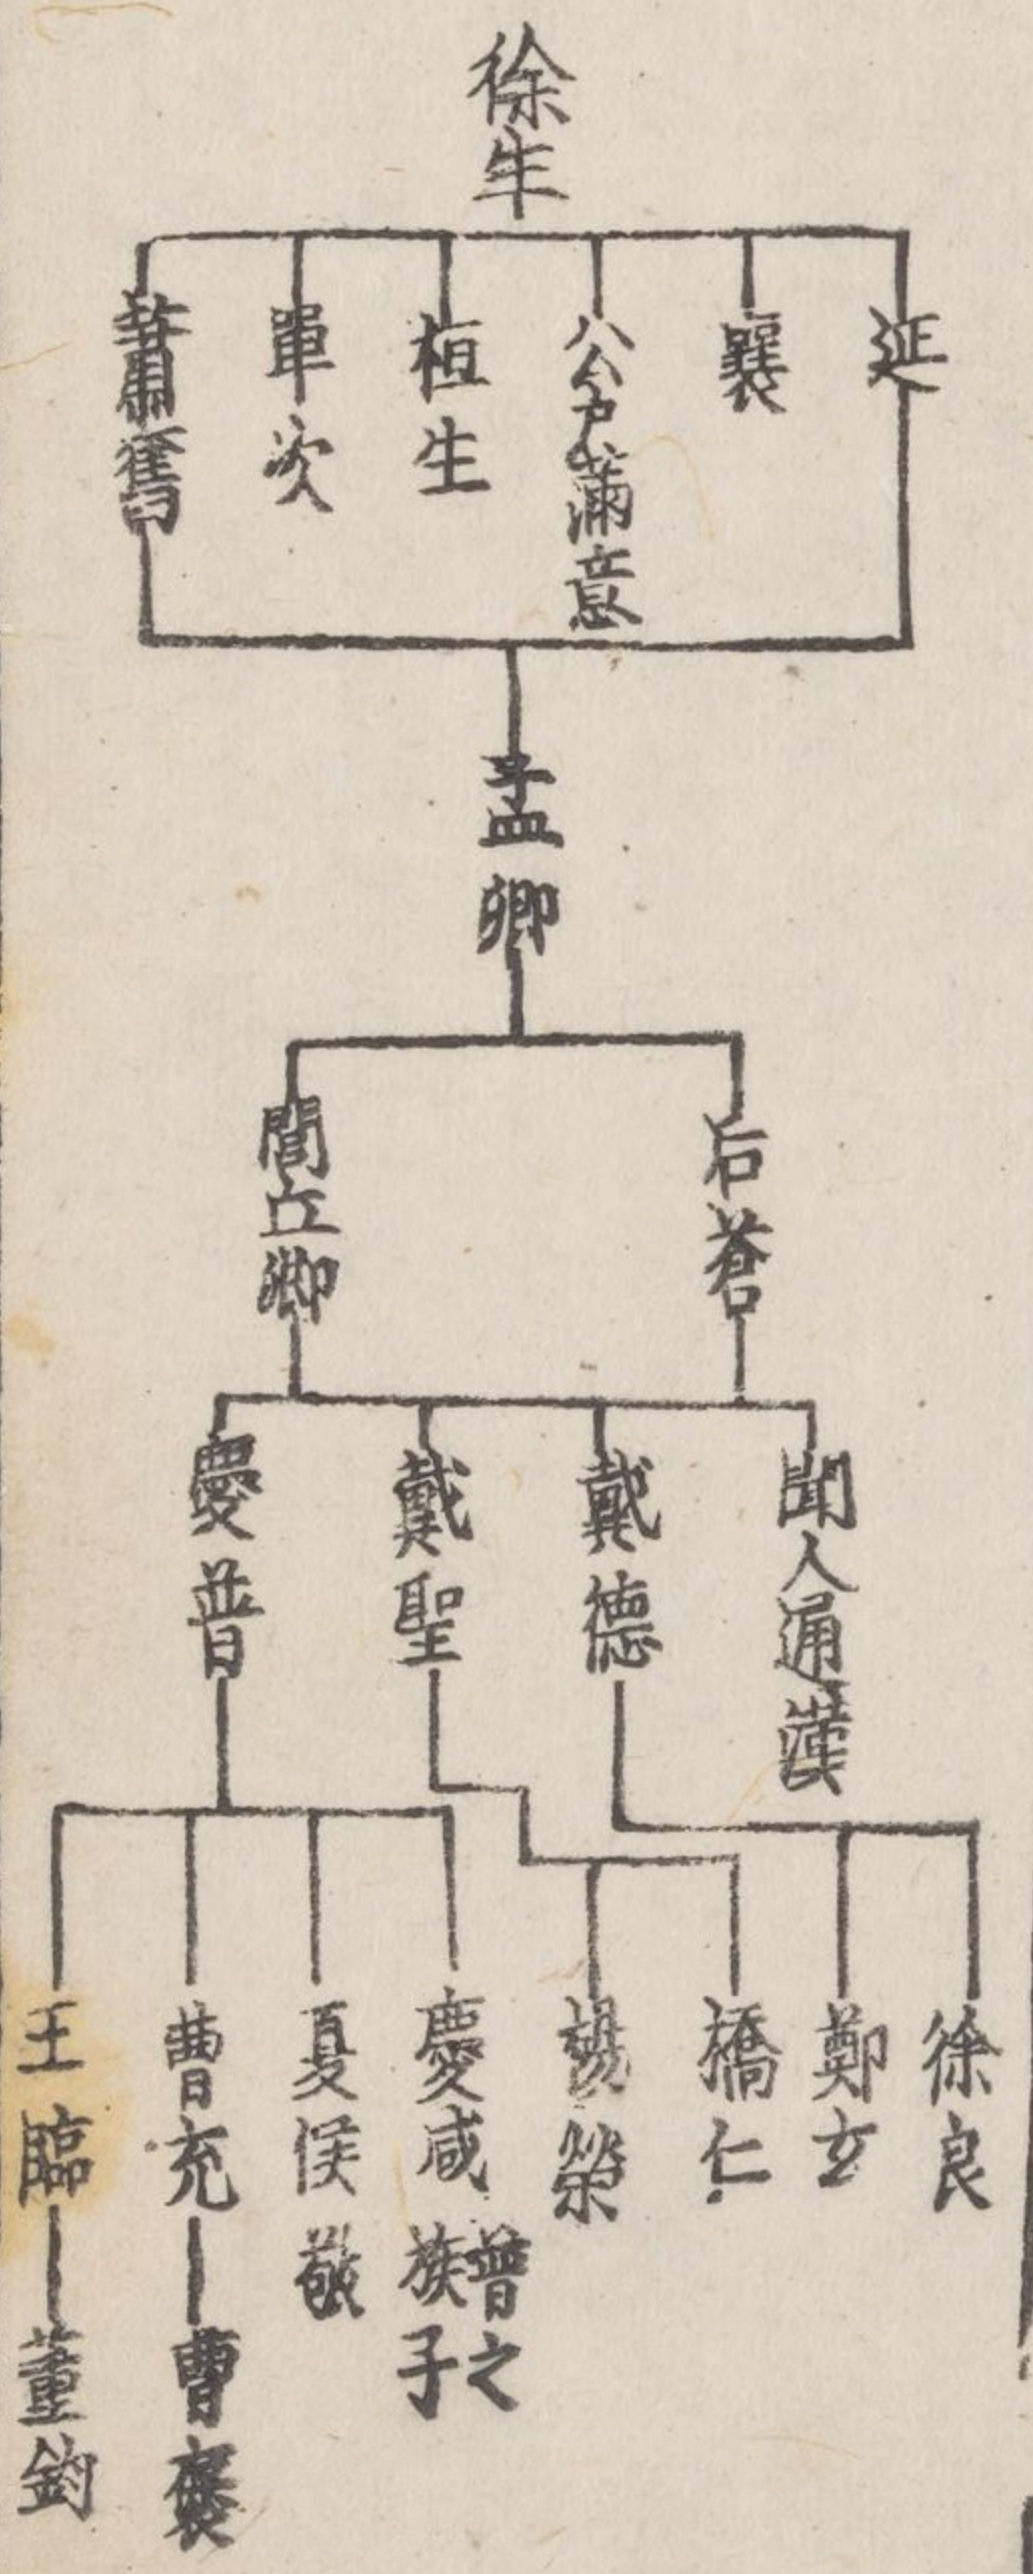 徐生
延
襄
公戶滿意
桓生
單次
蕭奮
孟卿
后蒼
閭丘卿
聞人通漢
戴德
戴聖
慶普
徐良
鄭玄
橋仁
楊榮
慶咸 普之族子
夏侯敬
曹充
曹褒
王臨
董鈞